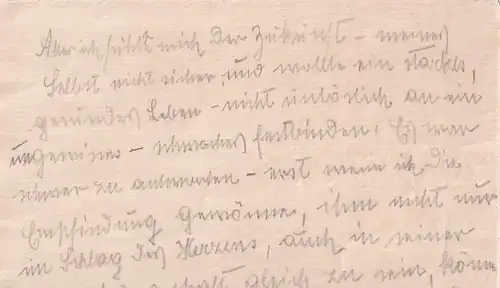 Aber ich fühlt mich der Zukunft – meines
Selbst nicht sicher, und wollte ein starkes,
gesundes Leben – nicht unlöslich an ein
ungewisses – schwaches festbinden. Es war
schwer zu antworten – erst wenn ich die
Empfindung gewönne, ihm nicht nur
im Schlag des Herzens, auch in seiner
gleich zu sein, könne